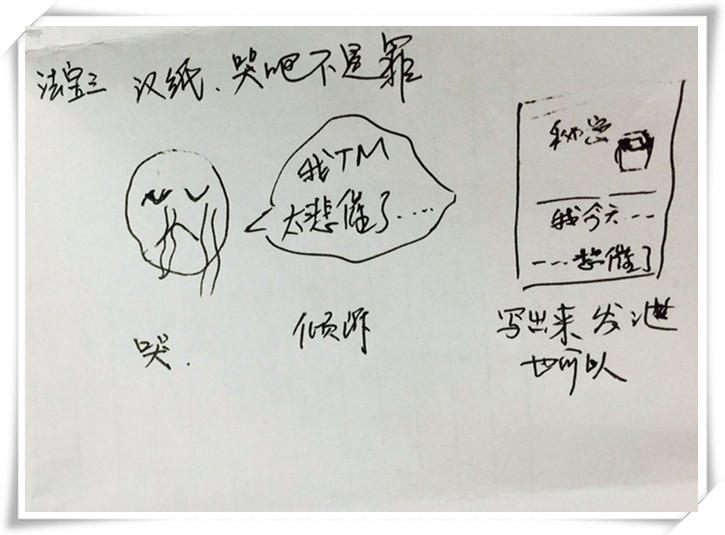 法宝三 汉纸、哭吧不是罪
我TM
太悲催了......
秘密
我今天---
---悲催了
哭.
倾诉
写出来发泄
也可以